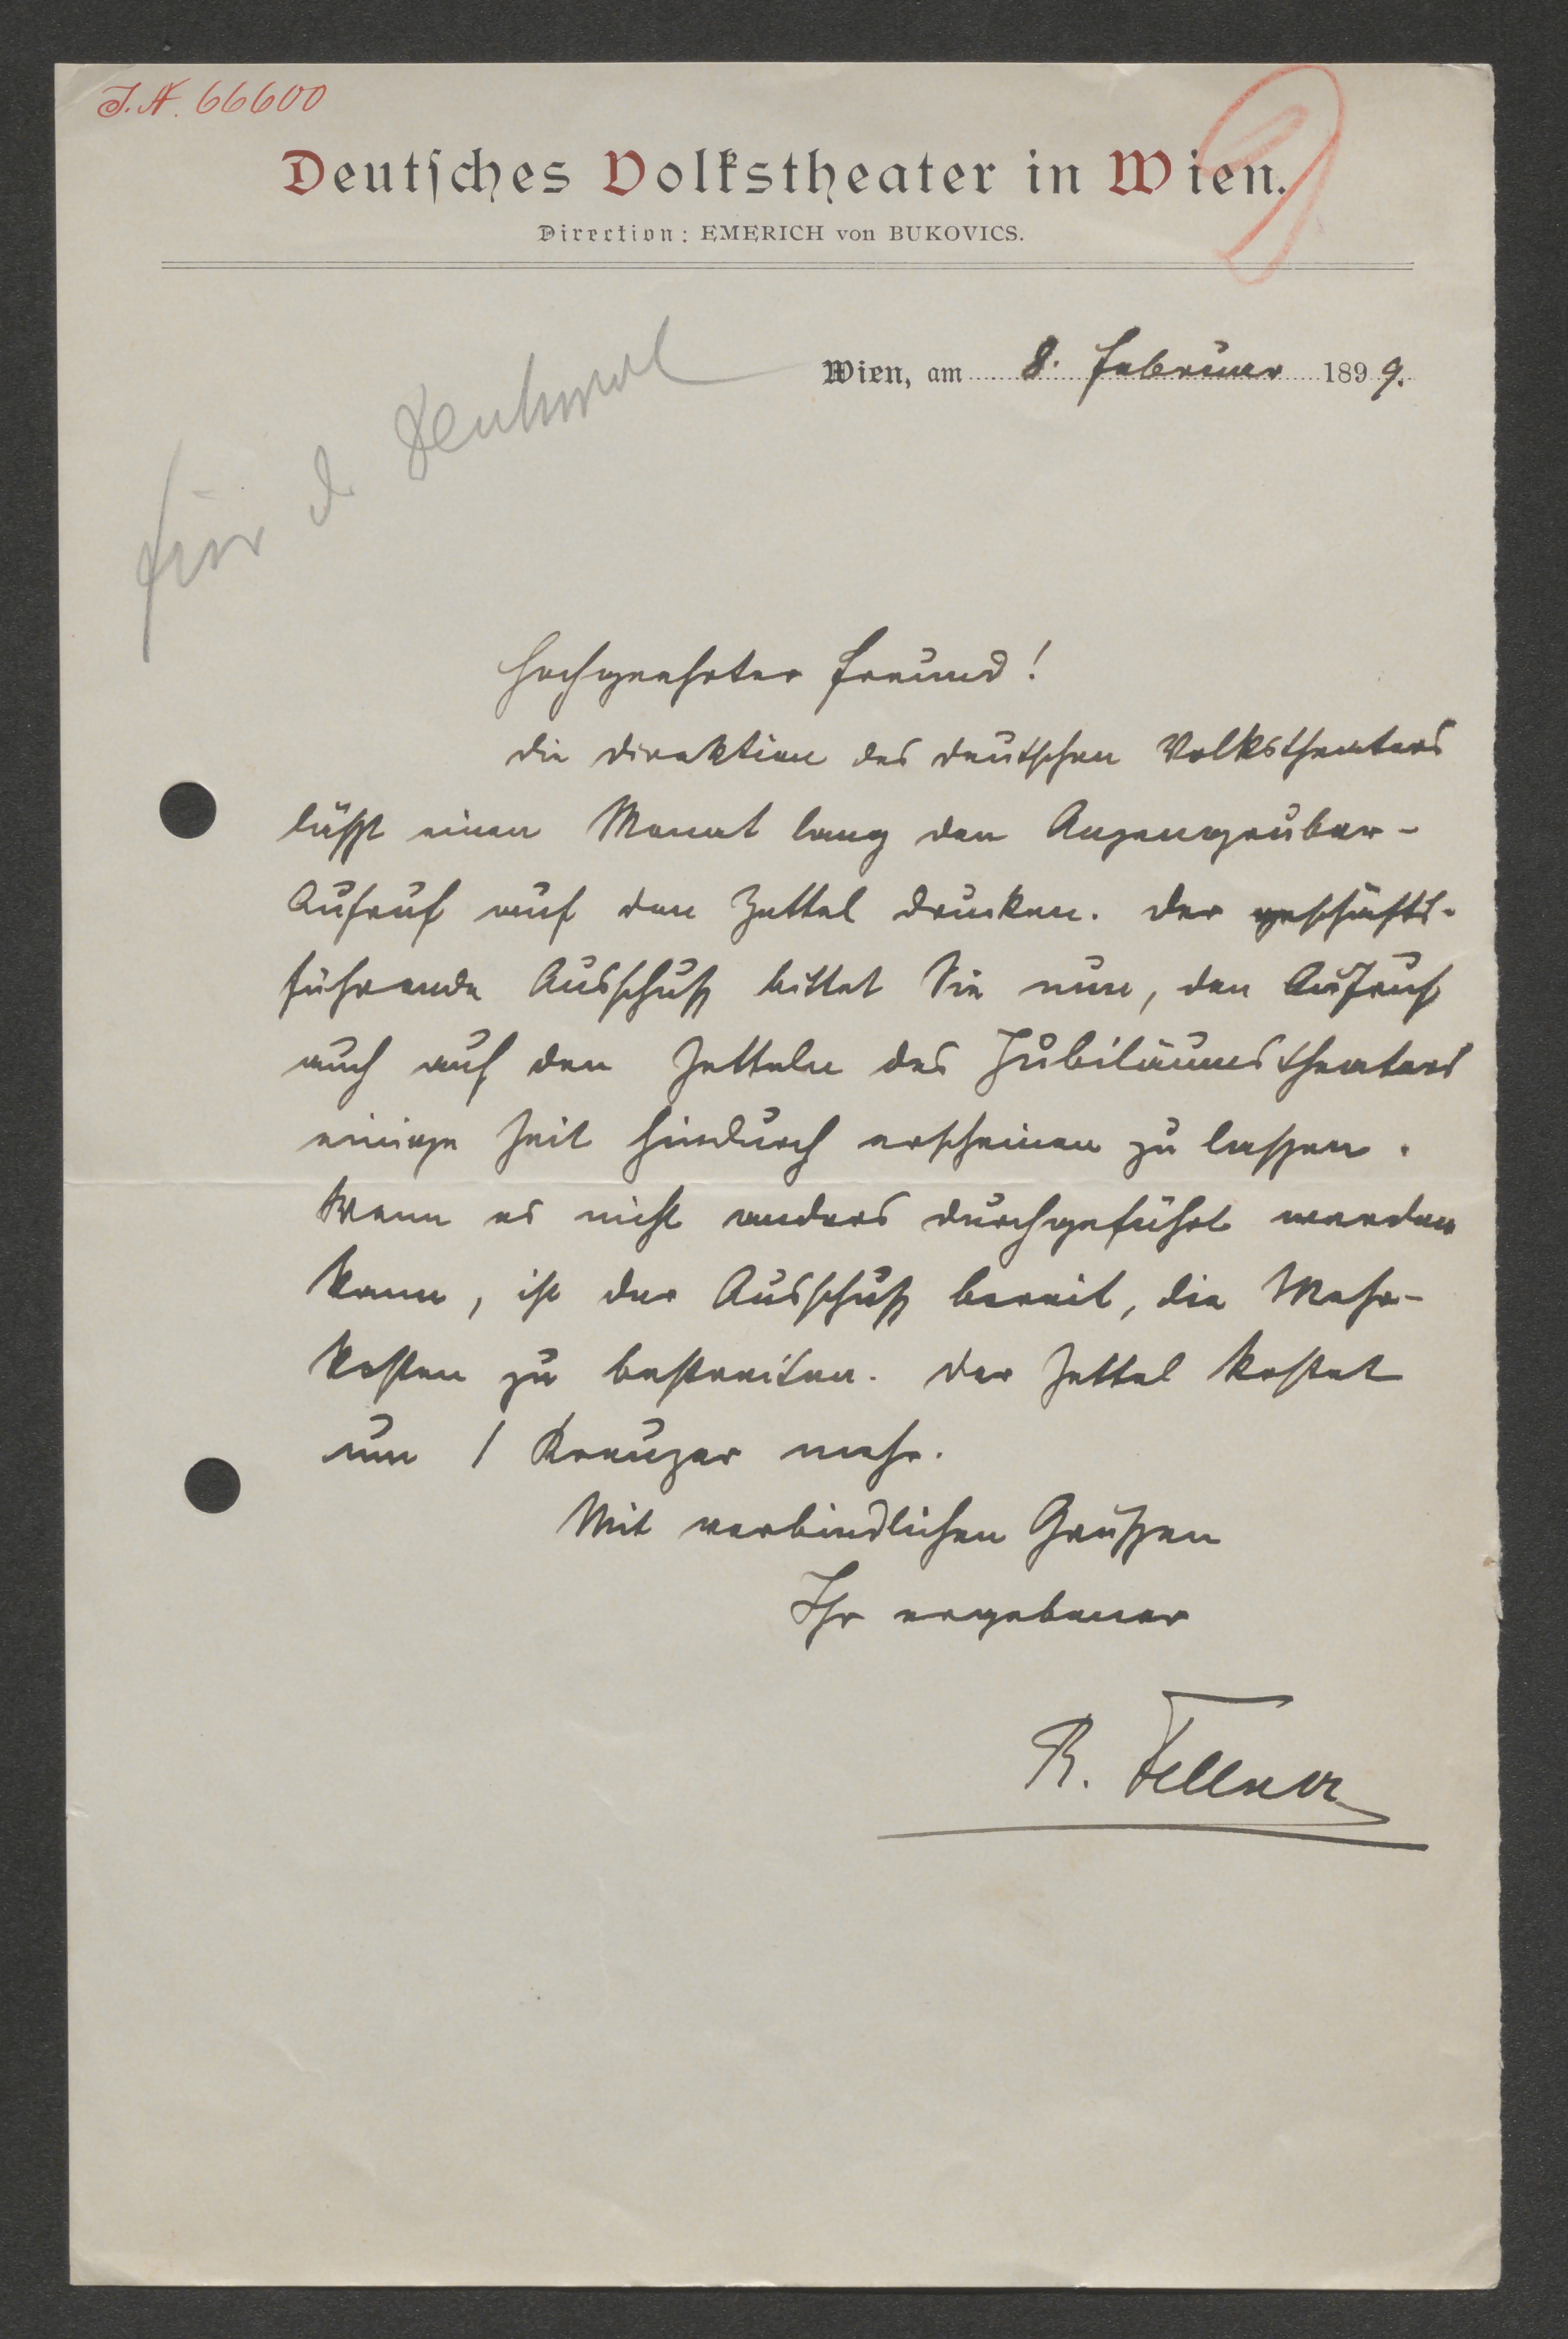 J.N. 66600
Deutsches Volkstheater in Wien.
Direction: EMERICH von BUKOVICS.
Wien, am 8. Februar 1899.
für d. Denkmal
Hochgeehrter Freund!
Die Direktion des deutschen Volkstheaters
läßt einen Monat lang den Anzengruber-
Aufruf auf den Zettel drucken. Der geschäfts-
führende Ausschuß bittet Sie nun, den Aufruf
auch auf den Zetteln des Jubiläumstheaters
einige Zeit hindurch erscheinen zu lassen.
Wenn es nicht anders durchgeführt werden
kann, ist der Ausschuß bereit, die Mehr-
kosten zu bestreiten. Der Zettel kostet
um 1 Kreuzer mehr.
Mit verbindlichen Grüßen
Ihr ergebener
R. Fellner